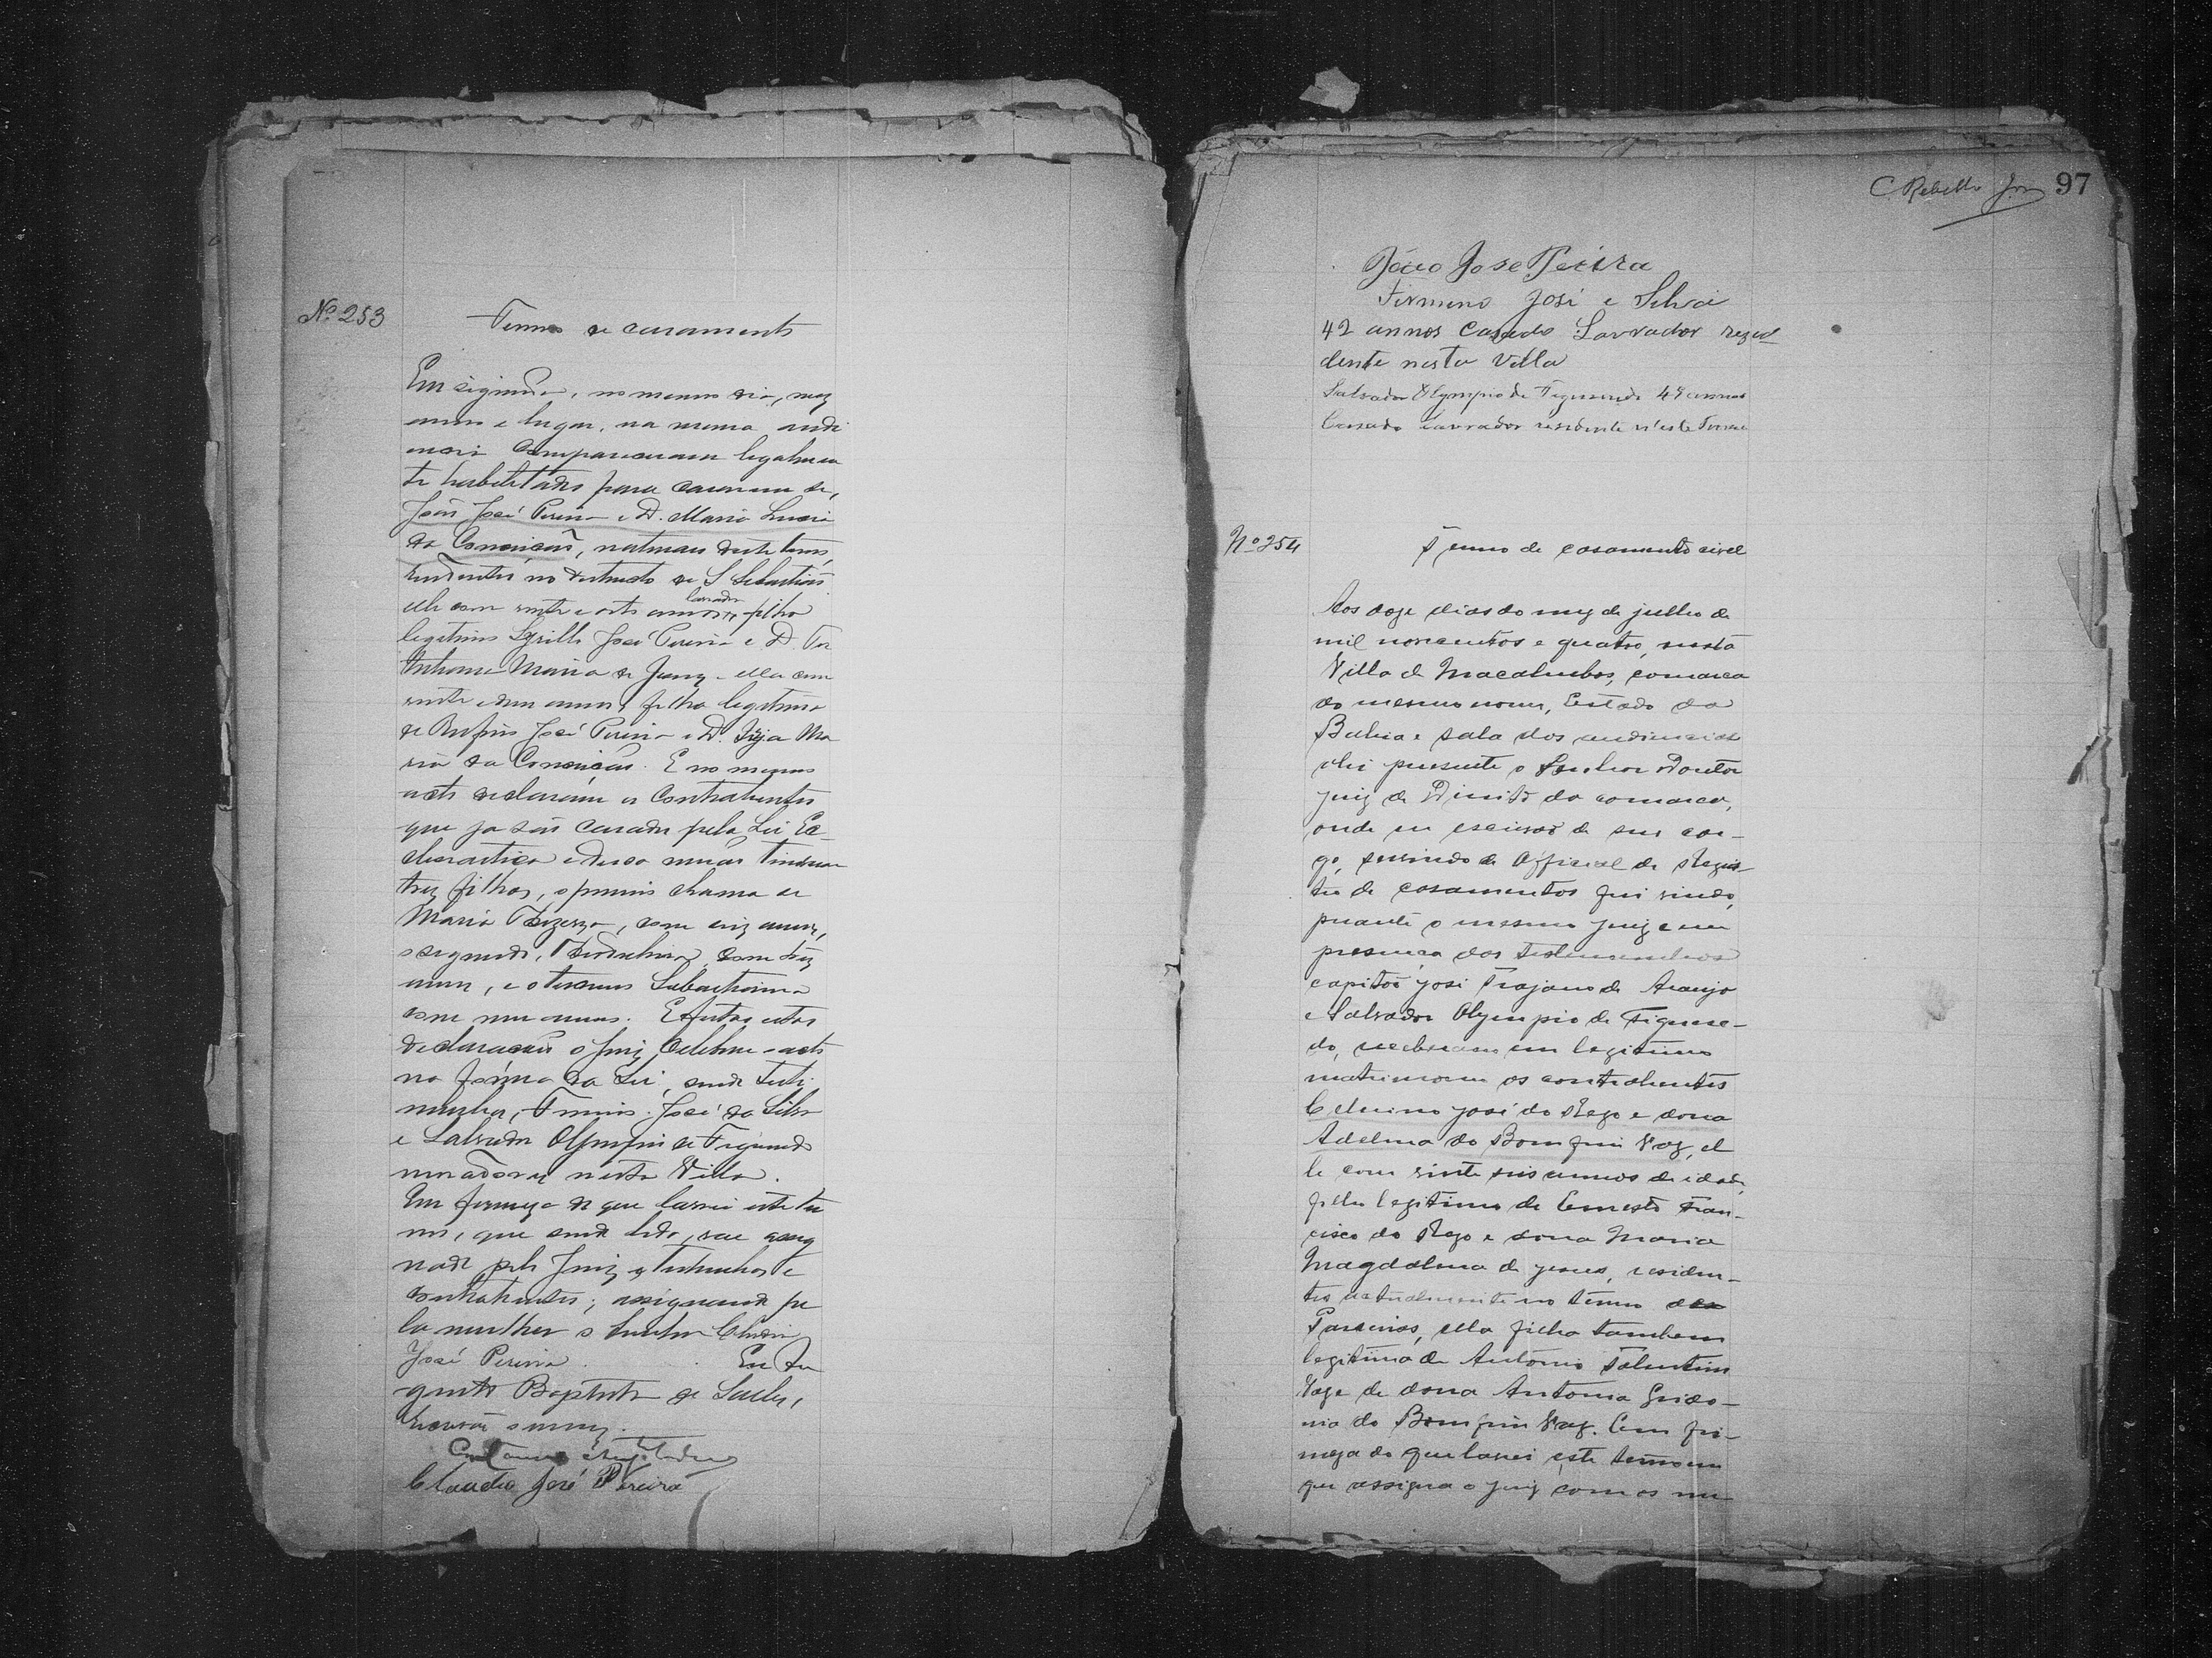 Nº 253
Termo de casamento
Em seguida, no mesmo dia, mez
anno e lugar, na mesma audi
encia compareceram legalmen
te habilitados para casarem se,
João José Pereira e D. Maria Lucia
da Conceição, naturaes deste termo,
residentes no districto de S. Sebastião
elle com vinte e oito annos, lavrador, filho
legitimo Cyrillo José Pereira e D.
Maria de Jesus e ella com
vinte e um annos, filha legitima
de Rufino José Pereira e D. Ma
ria da Conceição. E no mesmo
acto declararam os contrahentes
que ja são casados pela Lei Ec-
clesiastica e dessa união tiveram
trez filhos, o primeiro chama se
Maria, com seis annos,
o segundo, com trez
annos, e o terceiro Sebastiana
com um anno. E feitas estas
declarações o Juiz celebrou o acto
na fórma da Lei, sendo teste
munhas, Firmino José da Silva
e Salvador Olympio de Figueredo
moradores nesta Villa.
Em firmeza de que lavrei este ter
mo, que sendo lido, vae assig
nado pelo Juiz, testemunhas e
contrahentes; assignando pe
la mulher o Senhor Claudio
José Pereira. Eu Au
gusto Baptista de Salles,
Escrivão escrevy.
Claudio José Pereira
C Rebello Jor 97
João Jose Pereira
Firmino José e Silva
42 annos Casado Lavrador rezed
dente nesta Villa
Salvador Olympio de Figueredo 49 annos
Casado lavrador residente n'este Termo
Nº 254
Termo de casamento civel
Aos doze dias do mez de julho de
mil novecentos e quatro, nesta
Villa de Macahubas, comarca
do mesmo nome, Estado da
Bahia e sala das audiencias
ahi presente o Senhor Doutor
Juiz de Direito da comarca,
onde eu escrivão de seu car-
go, servindo de Official de Regis-
tro de casamentos fui vindo,
perante o mesmo juiz e em
presença das testemunhas
capitão José Trajano de Araujo
e Salvador Olympio de Figuere-
do, receberam em legitimo
matrimonio os contrahentes
Celsino José do Rego e dona
Adelina do Bomfim Vaz, el
le com vinte seis annos de idade,
filho legitimo de Ernesto Fran-
cisco do Rego e dona Maria
Magdalena de Jesus, residen-
tes actualmente no termo dos
ella filha tambem
legitima de Antonio Tolentino
Vaz e de dona Antonia
nia do Bomfim Vaz. Em fir-
meza do que lavrei este termo em
que assigna o juiz com os nu-